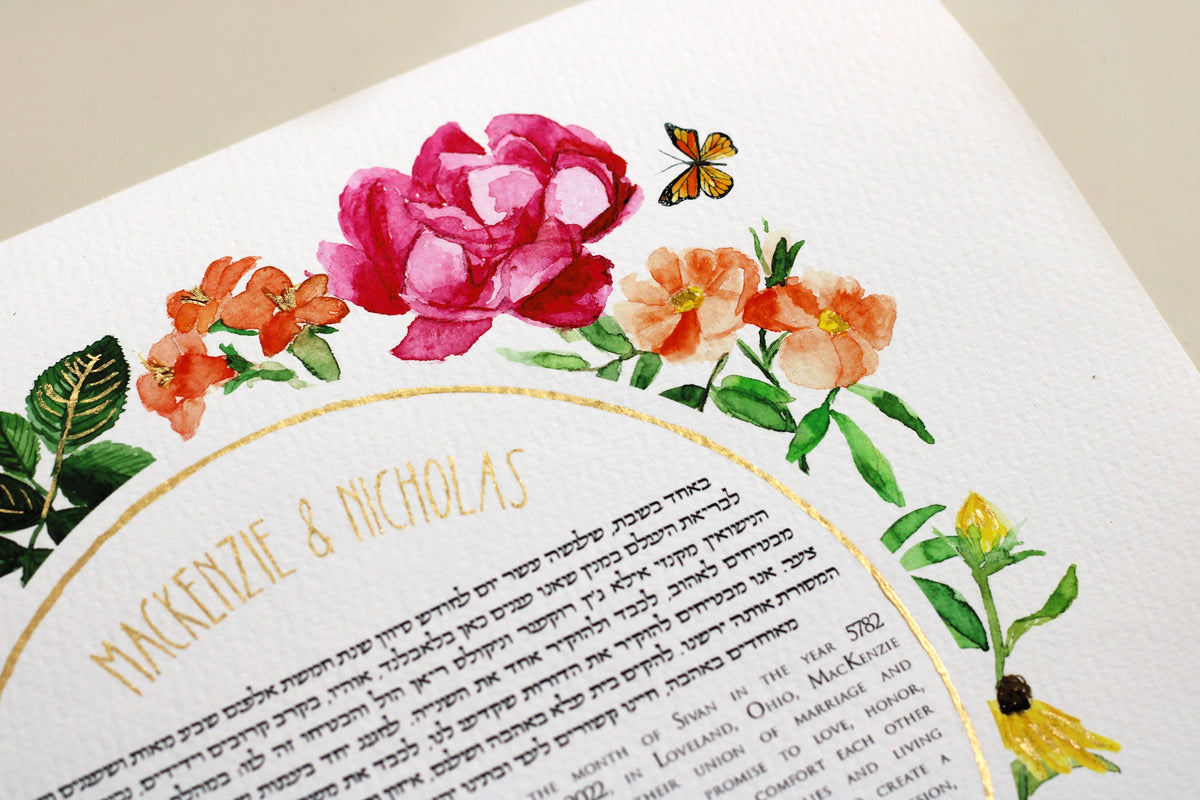 MACKENZIE & NICHOLAS
באחד בשבת, שלשה עשר יום לחודש סיון שנת חמשת אלפים שבע מאות ושמונים
לבריאת העולם במנין שאנו מונים כאן בלאבלנד, אוהיו, בקרב קרובים וידידים,
הנישואין מקנזי אילא ג׳ין רוקקער וניקולס ריאן הול והבטיחו זה לזה
מבטיחים לאהוב, לכבד ולהוקיר אחד את השנייה, לחגוג יחד בעתות
צער. אנו מבטיחים להוקיר את הדורות שקדמו לנו, לכבד את
המסורת אותה ירשנו. להקים בית מלא באהבה ושלום,
מאוחדים באהבה, חיינו קשורים לעד ובתינו
THE MONTH OF SIVAN IN THE YEAR 5782
2022, IN LOVELAND, OHIO, MACKENZIE
THEIR UNION OF MARRIAGE AND
PROMISE TO LOVE, HONOR,
COMFORT EACH OTHER
AND LIVING
CREATE A